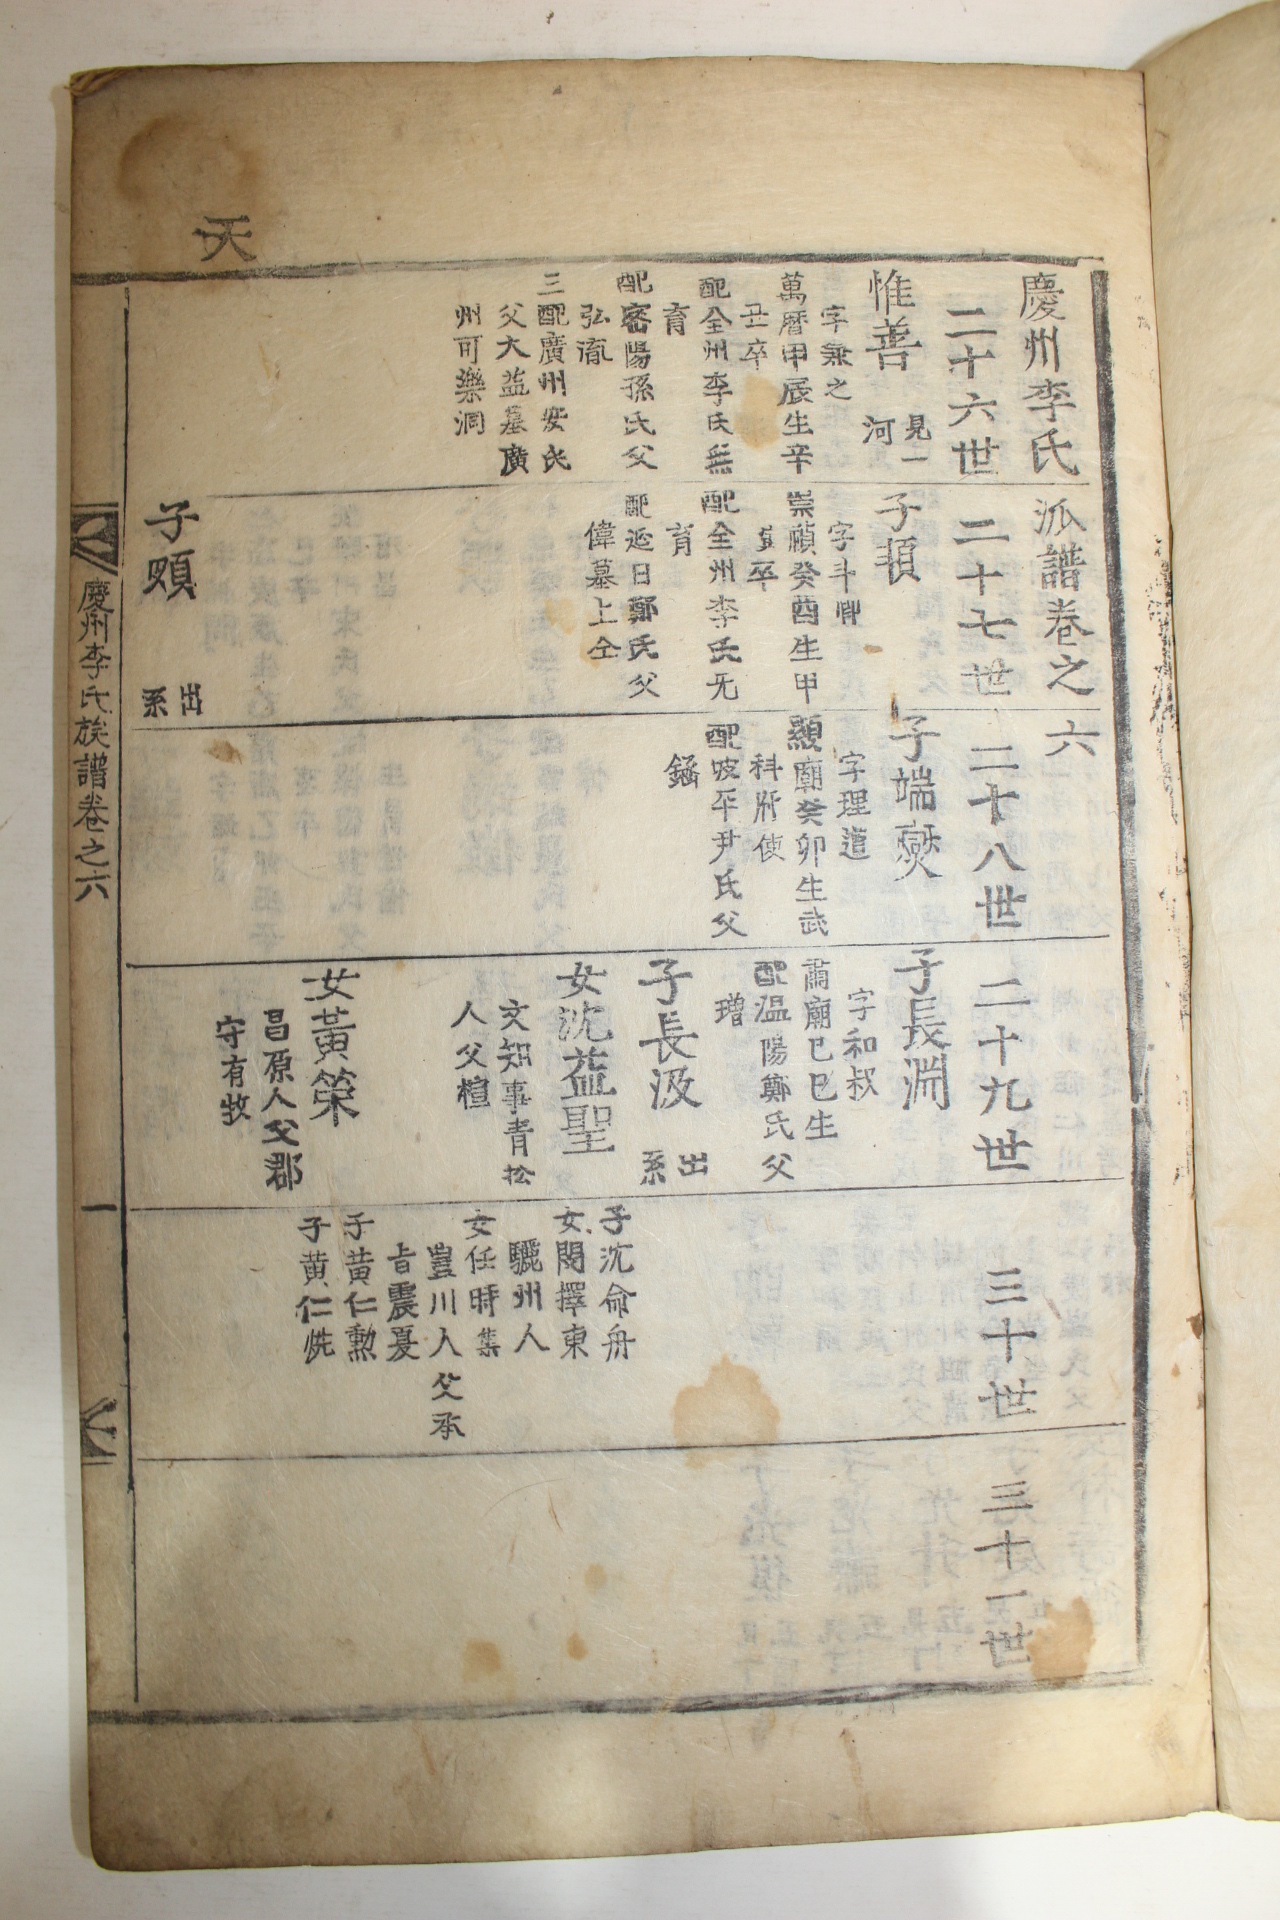 天
慶州李氏派譜卷之六
二十六世
惟善
見一
河
字兼之
萬曆甲辰生辛
丑卒
配全州李氏無
育
配密陽孫氏父
弘胤
三配廣州安氏
父大益墓廣
州可樂洞
二十七世
子頊
字斗卿
崇禎癸酉生甲
卒
配全州李氏无
育
配延日鄭氏父
偉墓上仝
子
出
系
二十八世
子端爕
字理道
顯廟癸卯生武
科府使
配坡平尹氏父
二十九世
子長淵
字和叔
肅廟己巳生
配温陽鄭氏父
璔
子長汲
出
系
女沈益聖
文知事青松
人父楦
女黃榮
昌原人父郡
守有牧
三十世
子沈命舟
女閔擇東
驪州人
女任時集
豈川人父承
旨震夏
子黃仁勲
子黃仁恍
三十一世
慶州李氏族譜卷之六
一